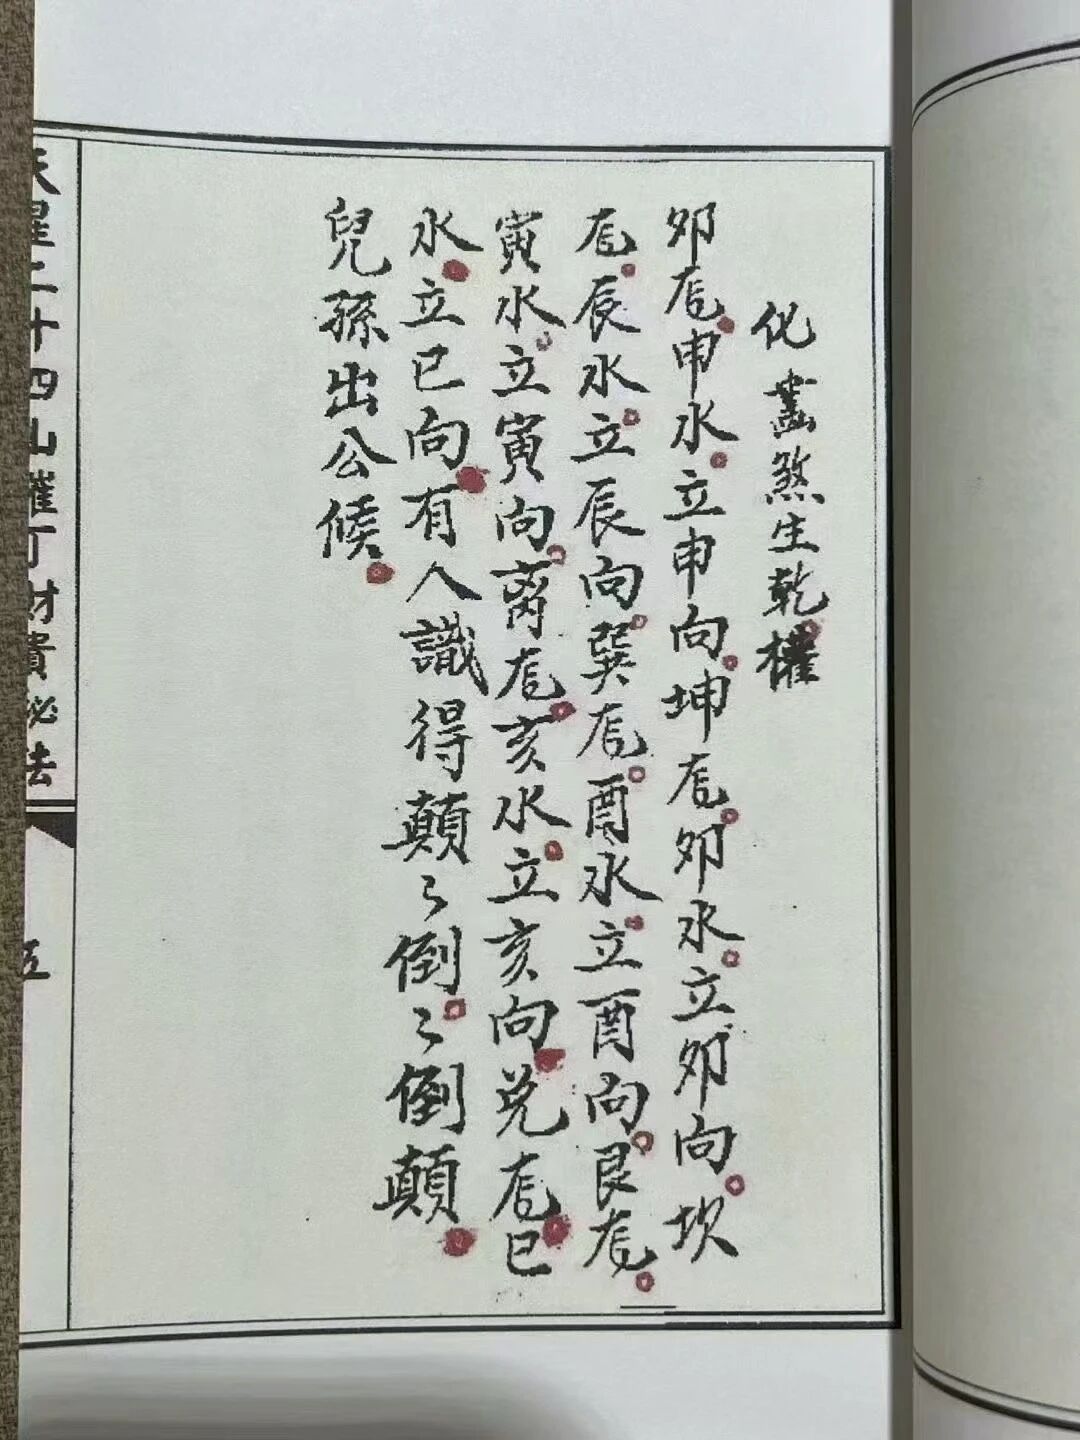 化煞生乾權
卯龙申水立申向坤龙卯水立卯向坎
龙辰水立辰向巽龙酉水立酉向艮龙
寅水立寅向离龙亥水立亥向兑龙巳
水立巳向有人識得顛〻倒〻倒顛
兒孫出公候
天星二十四山催丁財貴秘法
五